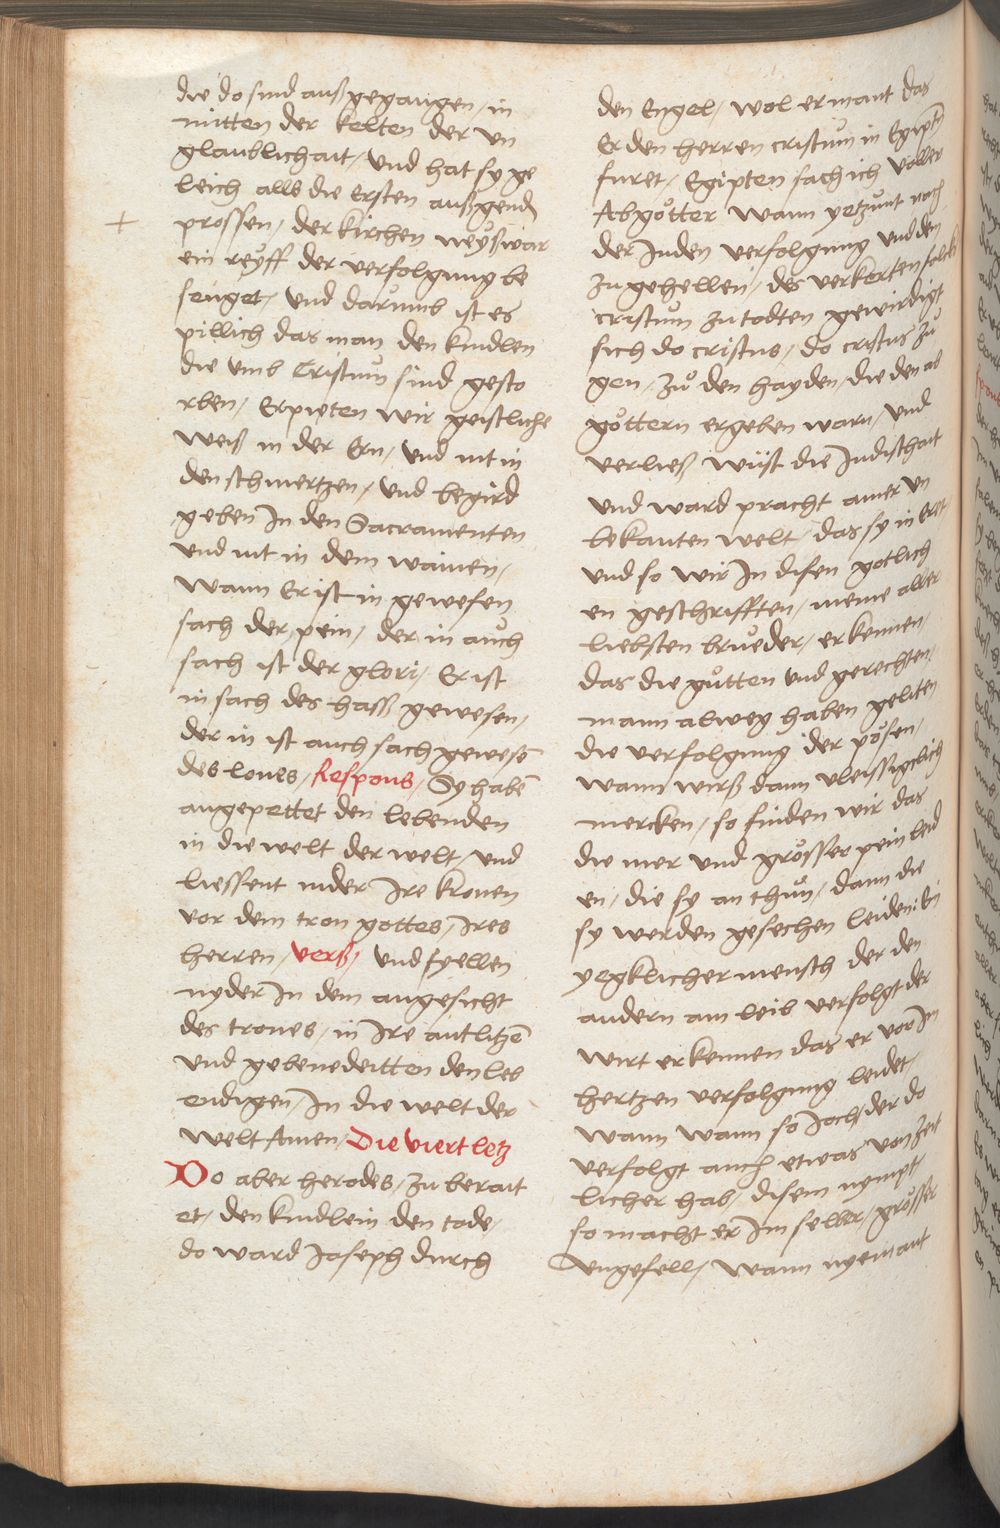 die do sind außgegangen, in
mitten der kelten der vn
glaublichait, vnd hat sy ge
leich allß die Ersten außgend
prossen, der kirchen neyßwar
ein reyff der verfolgung be
senget, vnd darumb ist es
pillich das man den kindlen
die vmb Cristum sind gesto
rben, Erpieten wir geistliche
weiß in der Ern, vnd nit in
den schmertzen, vnd begird
geben In den Sacramenten
vnd nit in dem wainen,
wann Er ist in gewesen
sach der pein, der in auch
sach ist der glori, Er ist
in sach des hass gewesen,
der in ist auch sach gewesē
des lones, Respons, Sy habē
angepettet den lebenden
in die welt der welt, vnd
liessent nider Ire kronen
vor dem tron gottes, Ires
herren, verß, vnd fyellen
nyder In dem angesicht
des trones, in Ire antlitzē
vnd gebenedeitten den leb
endigen, In die welt der
welt Amen, Die viert letz
Do aber herodes, zu berait
et, den kindlein den tode,
do ward Joseph durch
den Engel, wol ermant das
Er den herren cristum in Egiptn
furet, Egipten sach ich voller
Abgötter wann yetzunt nach
der Juden verfolgung vnd den
zugehellen, des verkerten folcks
cristum zu todten gewirdigt
sich do cristus, do cristus zů
gen, zů den hayden, die den ab
göttern ergeben warn, vnd
verließ wüst die Judischait
vnd ward pracht ainer vn
bekanten welt, das sy in eret,
vnd so wir In disen gotlich
en geschrifften, meine aller
liebsten brüeder, erkennen,
das die gůtten vnd gerechten,
mann alweg haben geliten
die verfolgung der pösen,
wann wirß dann vleissigclich
mercken, so finden wir das
die mer vnd grösser pein leid
en, die sy an thůn, dann die
sy werden gesechen leiden: Ein
yegklicher mensch der den
andern am leib verfolgt der
wirt erkennen das er vor Im
hertzen verfolgung leidet,
wann wann so Joch, der do
verfolgt auch etwas von zeit
licher hab, disem nympt,
so macht er Im selber, grösser
vngefell, wann nyemant